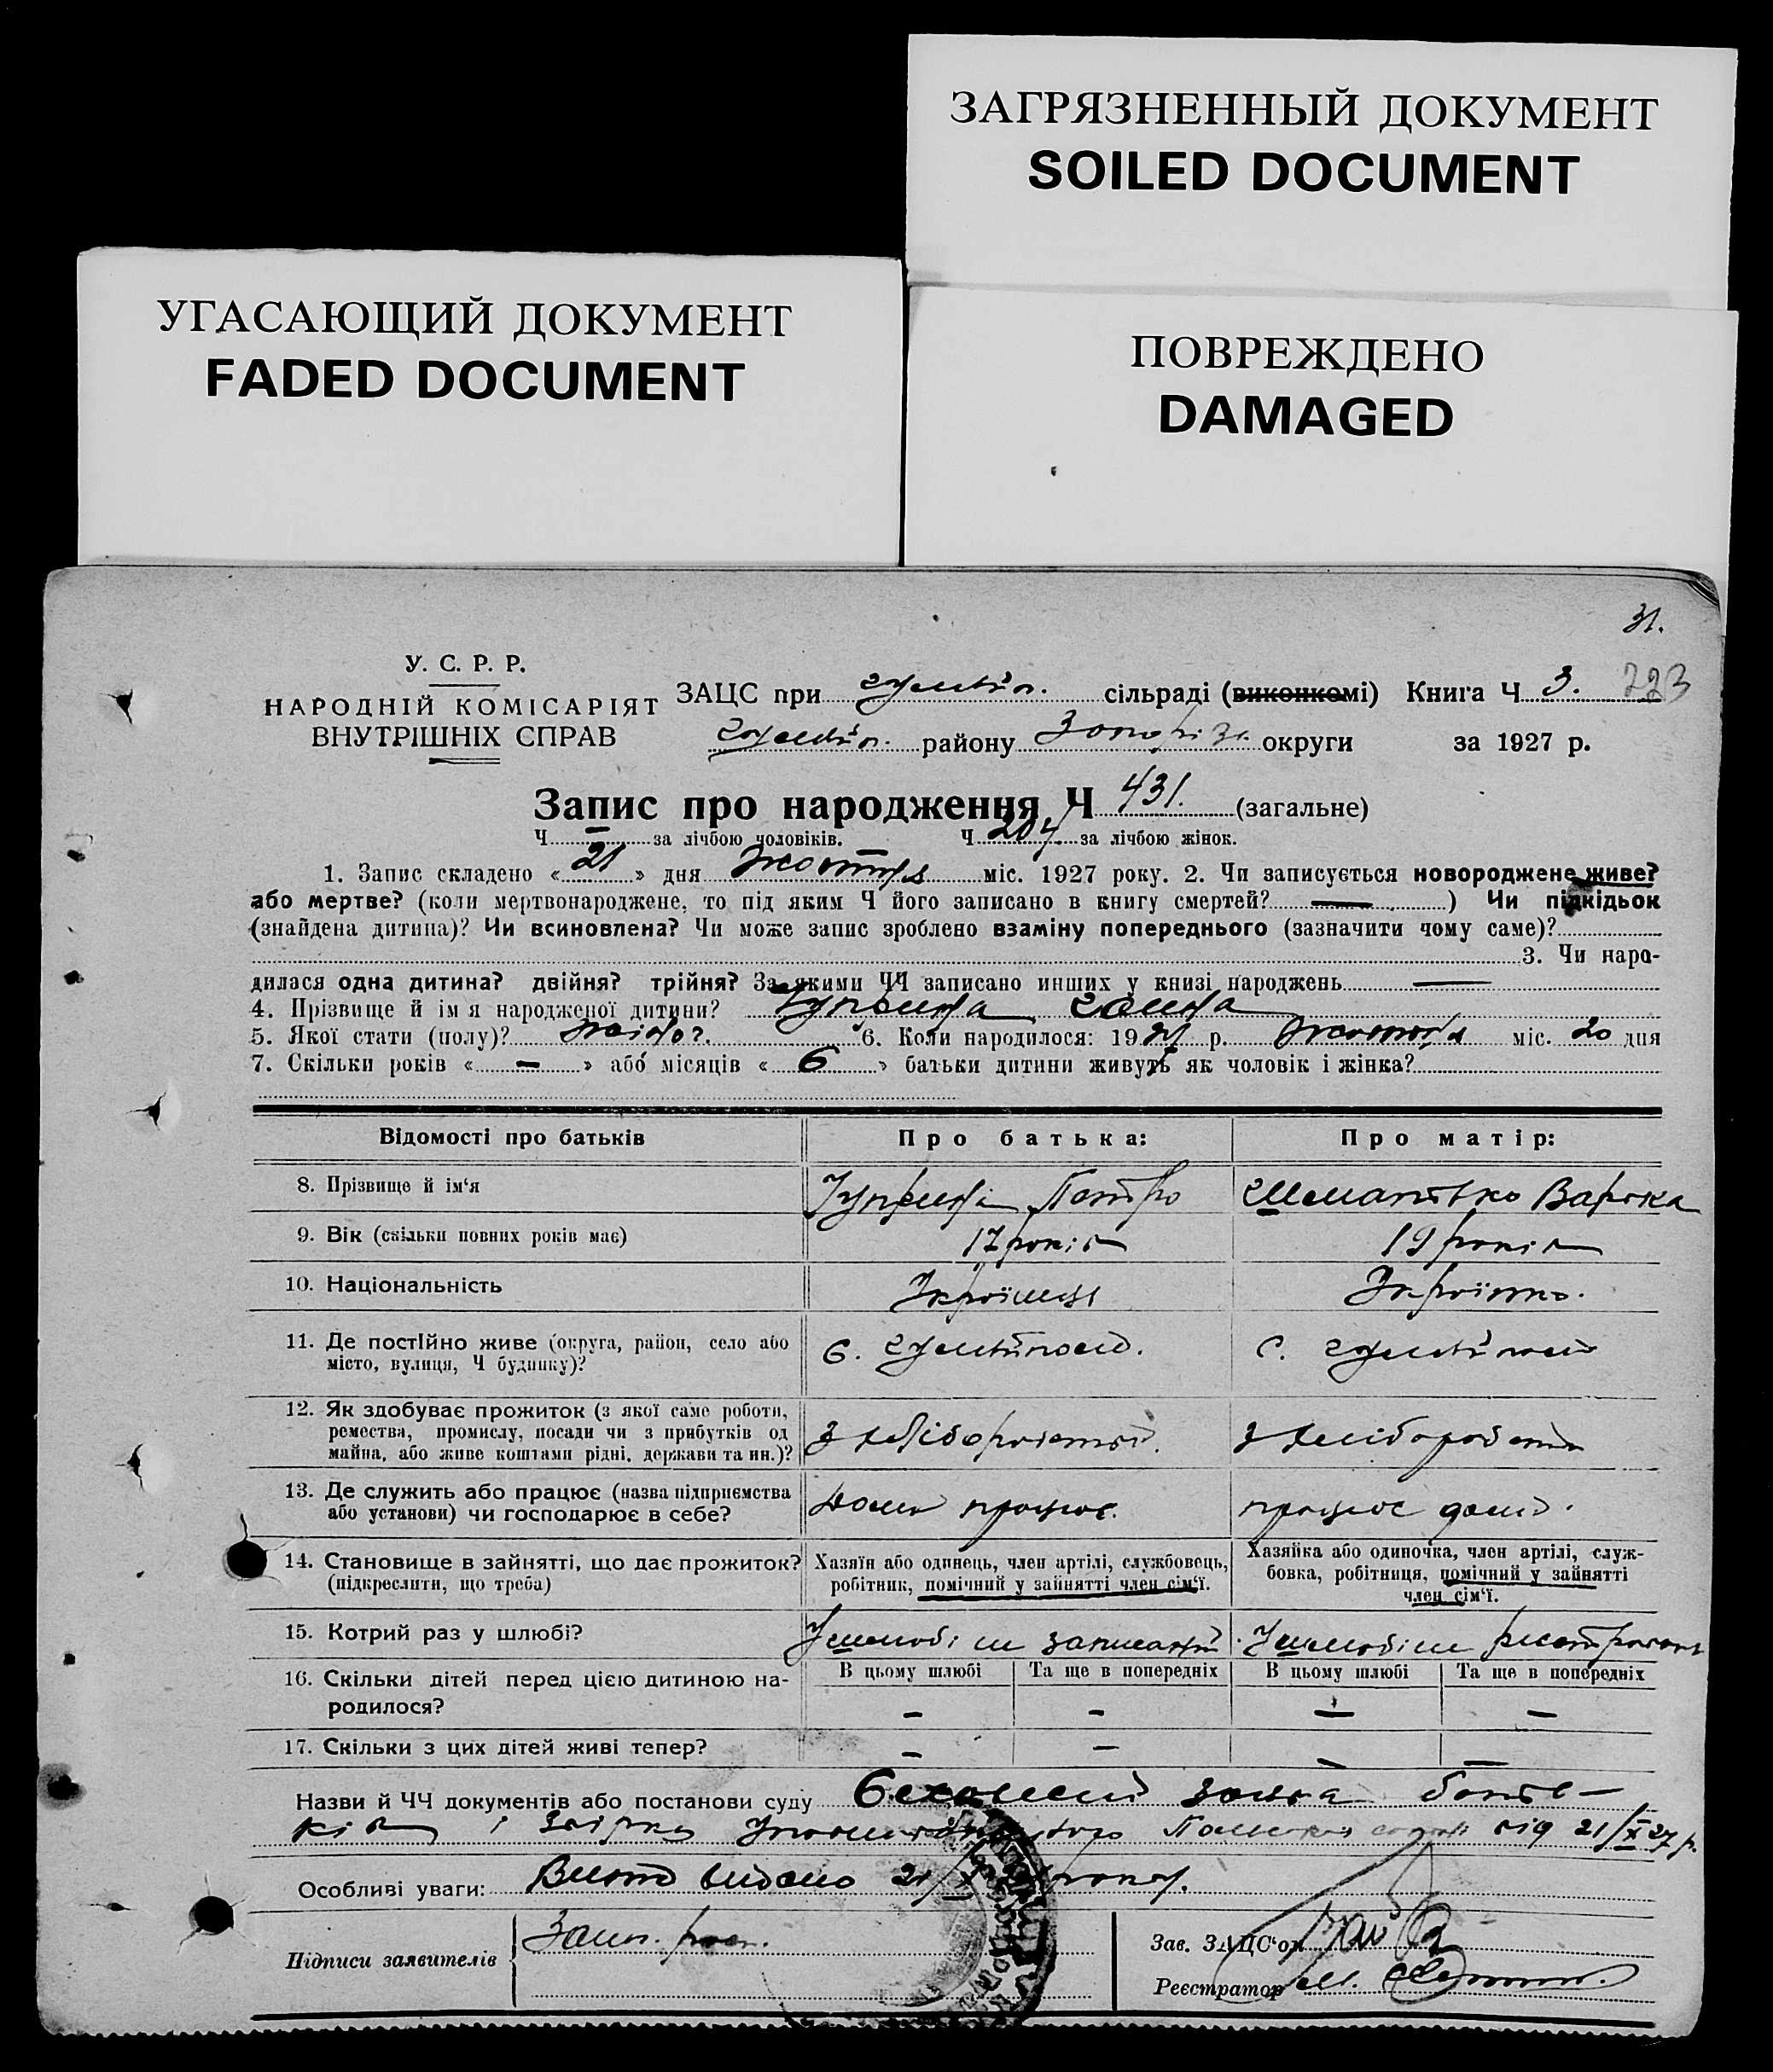 ЗАГРЯЗНЕННЫЙ ДОКУМЕНТ
SOILED DOCUMENT
УГАСАЮЩИЙ ДОКУМЕНТ
FADED DOCUMENT
ПОВРЕЖДЕНО
DAMAGED
31.
У. С. Р. Р.
НАРОДНІЙ КОМІСАРІЯТ
ВНУТРІШНІХ СПРАВ
ЗАЦС при сільраді (виконкомі) Книга Ч 3. 223
району округи за 1927 р.
Запис про народження Ч 431. (загальне)
Ч – за лічбою чоловіків. Ч 204 за лічбою жінок.
1. Запис складено « 21 » дня жовтня міс. 1927 року. 2. Чи записується новороджене живе?
або мертве? (коли мертвонароджене, то під яким Ч його записано в книгу смертей? — ) Чи підкідьок
(знайдена дитина)? Чи всиновлена? Чи може запис зроблено взаміну попереднього (зазначити чому саме)?
3. Чи наро-
дилася одна дитина? двійня? трійня? За якими ЧЧ записано инших у книзі народжень —
4. Прізвище й ім я народженої дитини?
5. Якої стати (полу)? жіноч. 6. Коли народилося: 1927 р. жовтня міс. 20 дня
7. Скільки років « – » або місяців « 6 » батьки дитини живуть як чоловік і жінка?
Відомості про батьків
Про батька:
Про матір:
8. Прізвище й ім'я
Петро
Варька
9. Вік (скільки повних років має)
17 років
19 років
10. Національність
Українець
Українка.
11. Де постійно живе (округа, район, село або
місто, вулиця, Ч будинку)?
с.
с.
12. Як здобуває прожиток (з якої саме роботи,
ремества, промислу, посади чи з прибутків од
майна, або живе коштами рідні, держави та ин.)?
З хліборобства.
З хліборобства
13. Де служить або працює (назва підприємства
або установи) чи господарює в себе?
дома працює.
працює дома.
14. Становище в зайнятті, що дає прожиток?
(підкреслити, що треба)
Хазяїн або одинець, член артілі, службовець,
робітник, помічний у зайнятті член сім'ї.
Хазяйка або одиночка, член артілі, служ-
бовка, робітниця, помічний у зайнятті
член сім'ї.
15. Котрий раз у шлюбі?
У шлюбі не записаний
У шлюбі не
16. Скільки дітей перед цією дитиною на-
родилося?
В цьому шлюбі
Та ще в попередніх
В цьому шлюбі
Та ще в попередніх
– – – –
17. Скільки з цих дітей живі тепер?
– – – –
Назви й ЧЧ документів або постанови суду заява бать-
ків і від 21/X 27 р.
Особливі уваги: видано 21/X
Підписи заявителів
Зав. ЗАЦС'ом
Реєстратор